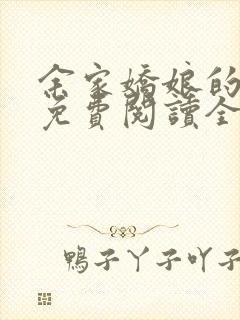 余家嬌娘的
免費閱讀全
鴨子丫子吖子